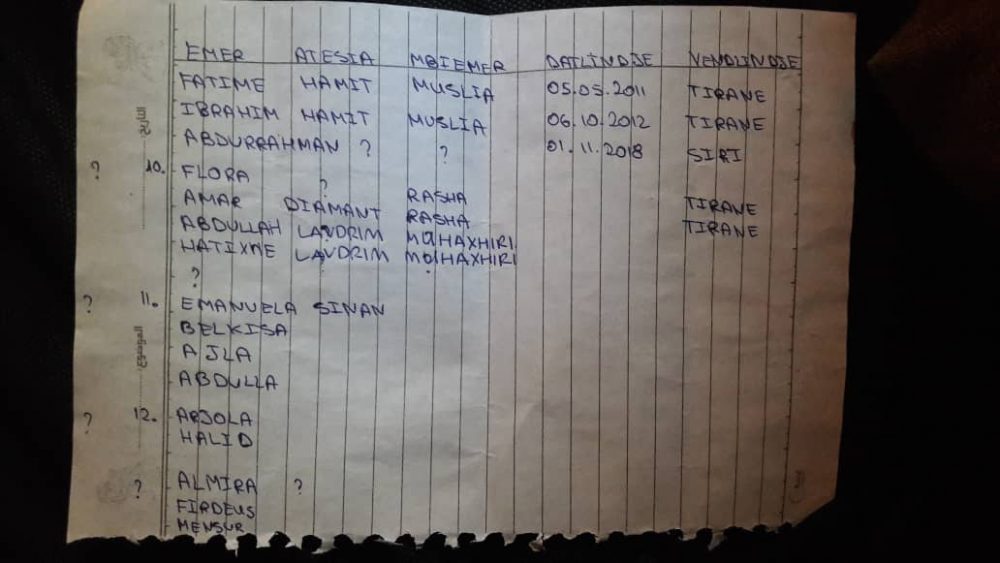 EMER ATESIA MBIEMER DATLINDJE VENDLINDJE
FATIME HAMIT MUSLIA 05.05.2011 TIRANE
IBRAHIM HAMIT MUSLIA 06.10.2012 TIRANE
ABDURRAHMAN ? ? 01.11.2018 SIRI
? 10. FLORA ? RASHA
AMAR DIAMANT RASHA TIRANE
ABDULLAH LAVDRIM MUHAXHIRI TIRANE
HATIXHE LAVDRIM MUHAXHIRI
?
? 11. EMANUELA SINAN
BELKISA
AJLA
ABDULLA
? 12. ARJOLA
HALID
? ALMIRA ?
FIRDEUS
MENSUR
التاريخ
الموضوع